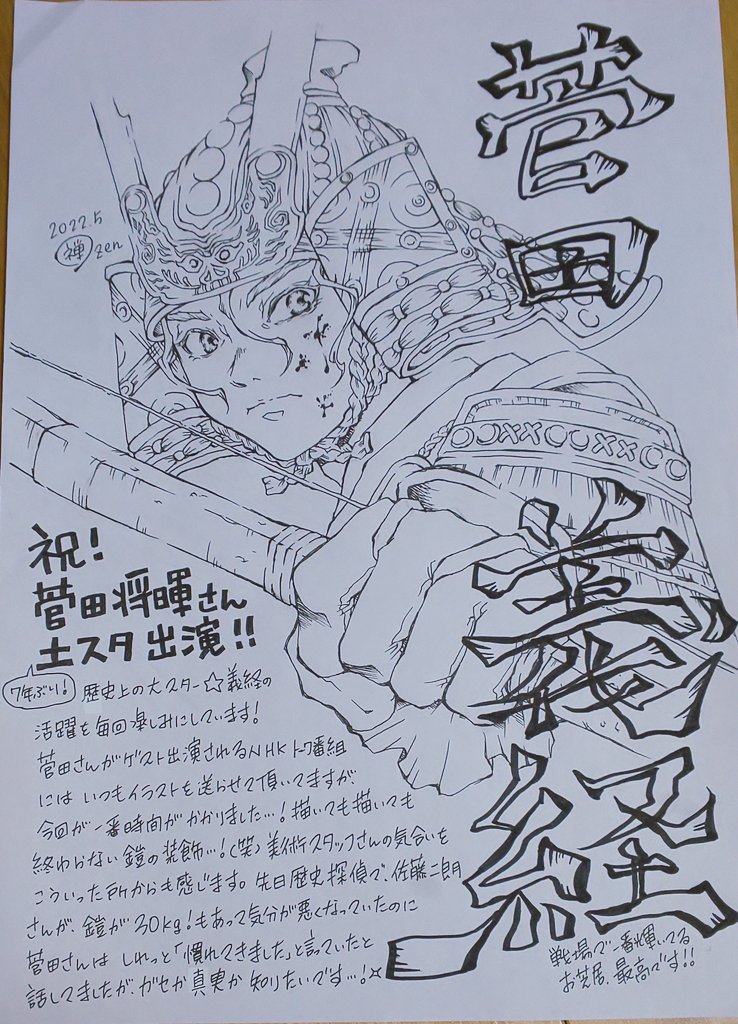 菅田
義経
2022.5
禅 zen
祝!
菅田将暉さん
土スタ出演!!
7年ぶい!
歴史上の大スター☆義経の
活躍を毎回楽しみにしています!
菅田さんがゲスト出演されるNHKトーク番組
にはいつもイラストを送らせて頂いてますが
今回が一番時間がかかりました…!描いても描いても
終わらない鎧の装飾…!(笑)美術スタッフさんの気合いを
こういった所からも感じます。先日歴史探偵で、佐藤二朗
さんが、鎧が30kg!もあって気分が悪くなっていたのに
菅田さんはしれっと「慣れてきました」と言っていたと
話してましたが、ガセか真実か知りたいです…!
戦場で一番輝いてる
お芝居、最高です!!